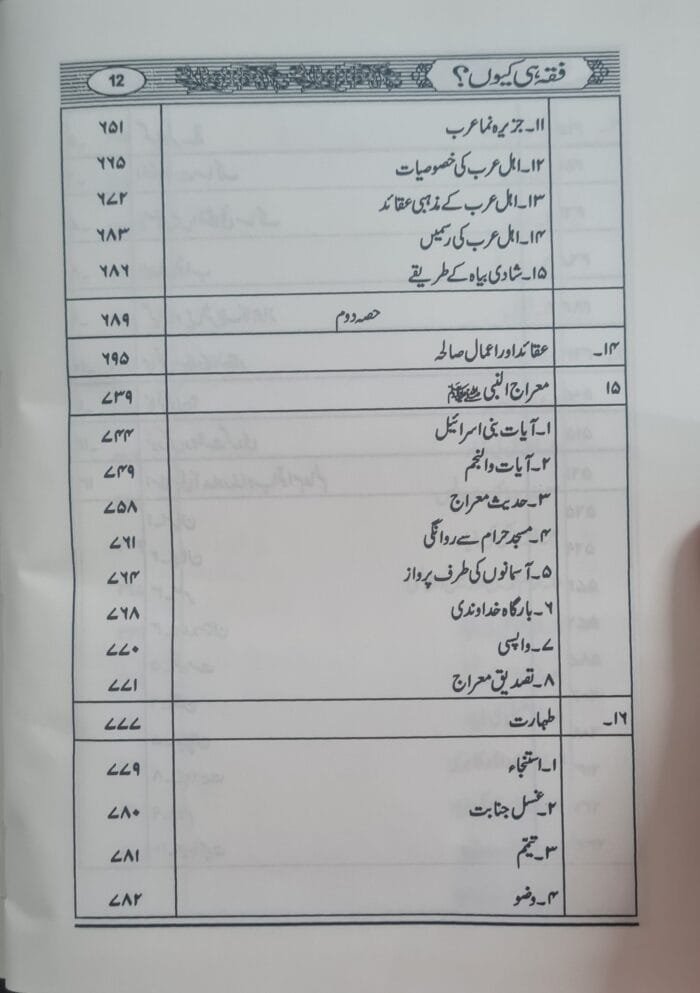 فقہ ہی کیوں؟ 12
۱۱۔ جزیرہ نما عرب ۶۵۱
۱۲۔ اہل عرب کی خصوصیات ۶۶۵
۱۳۔ اہل عرب کے مذہبی عقائد ۶۷۲
۱۴۔ اہل عرب کی رسمیں ۶۸۳
۱۵۔ شادی بیاہ کے طریقے ۶۸۶
حصہ دوم ۶۸۹
۱۴۔ عقائد اور اعمال صالحہ ۶۹۵
۱۵ معراج النبی ﷺ ۷۳۹
۱۔ آیات بنی اسرائیل ۷۴۴
۲۔ آیات والنجم ۷۴۹
۳۔ حدیث معراج ۷۵۸
۴۔ مسجد حرام سے روانگی ۷۶۱
۵۔ آسمانوں کی طرف پرواز ۷۶۴
۶۔ بارگاہ خداوندی ۷۶۸
۷۔ واپسی ۷۷۰
۸۔ تصدیق معراج ۷۷۱
۱۶۔ طہارت ۷۷۷
۱۔ استنجاء ۷۷۹
۲۔ غسل جنابت ۷۸۰
۳۔ تیمّم ۷۸۱
۴۔ وضو ۷۸۲